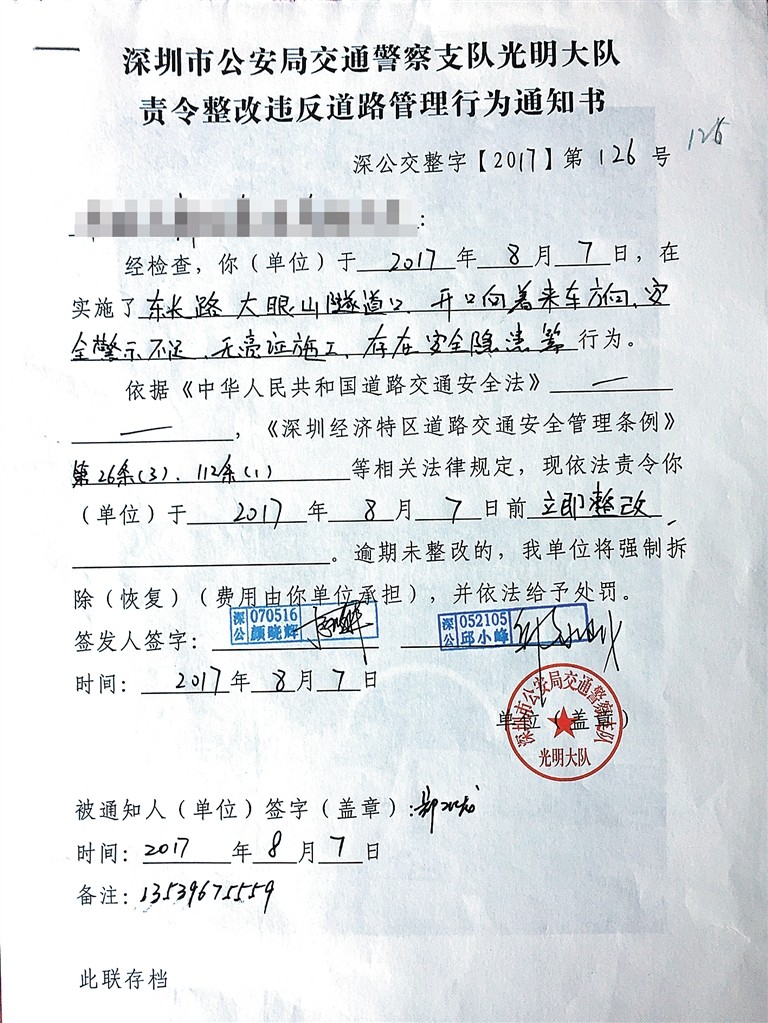 深圳市公安局交通警察支队光明大队
责令整改违反道路管理行为通知书
126
深公交整字【2017】第 126 号
:
经检查，你（单位）于 2017 年 8 月 7 日，在
实施了 东长路大眼山隧道口、开口向着来车方向、安
全警示不足、无证施工、存在安全隐患等 行为。
依据《中华人民共和国道路交通安全法》 —
— ，《深圳经济特区道路交通安全管理条例》
第26条(3)、112条(1) 等相关法律规定，现依法责令你
（单位）于 2017 年 8 月 7 日前 立即整改，
。逾期未整改的，我单位将强制拆
除（恢复）（费用由你单位承担），并依法给予处罚。
签发人签字： 深公 070516 颜晓辉 深公 052105 邱小峰
时间： 2017 年 8 月 7 日
单位（盖章）
深圳市公安局交通警察支队
光明大队
被通知人（单位）签字（盖章）:郑
时间：2017 年 8 月 7 日
备注：13539675559
此联存档